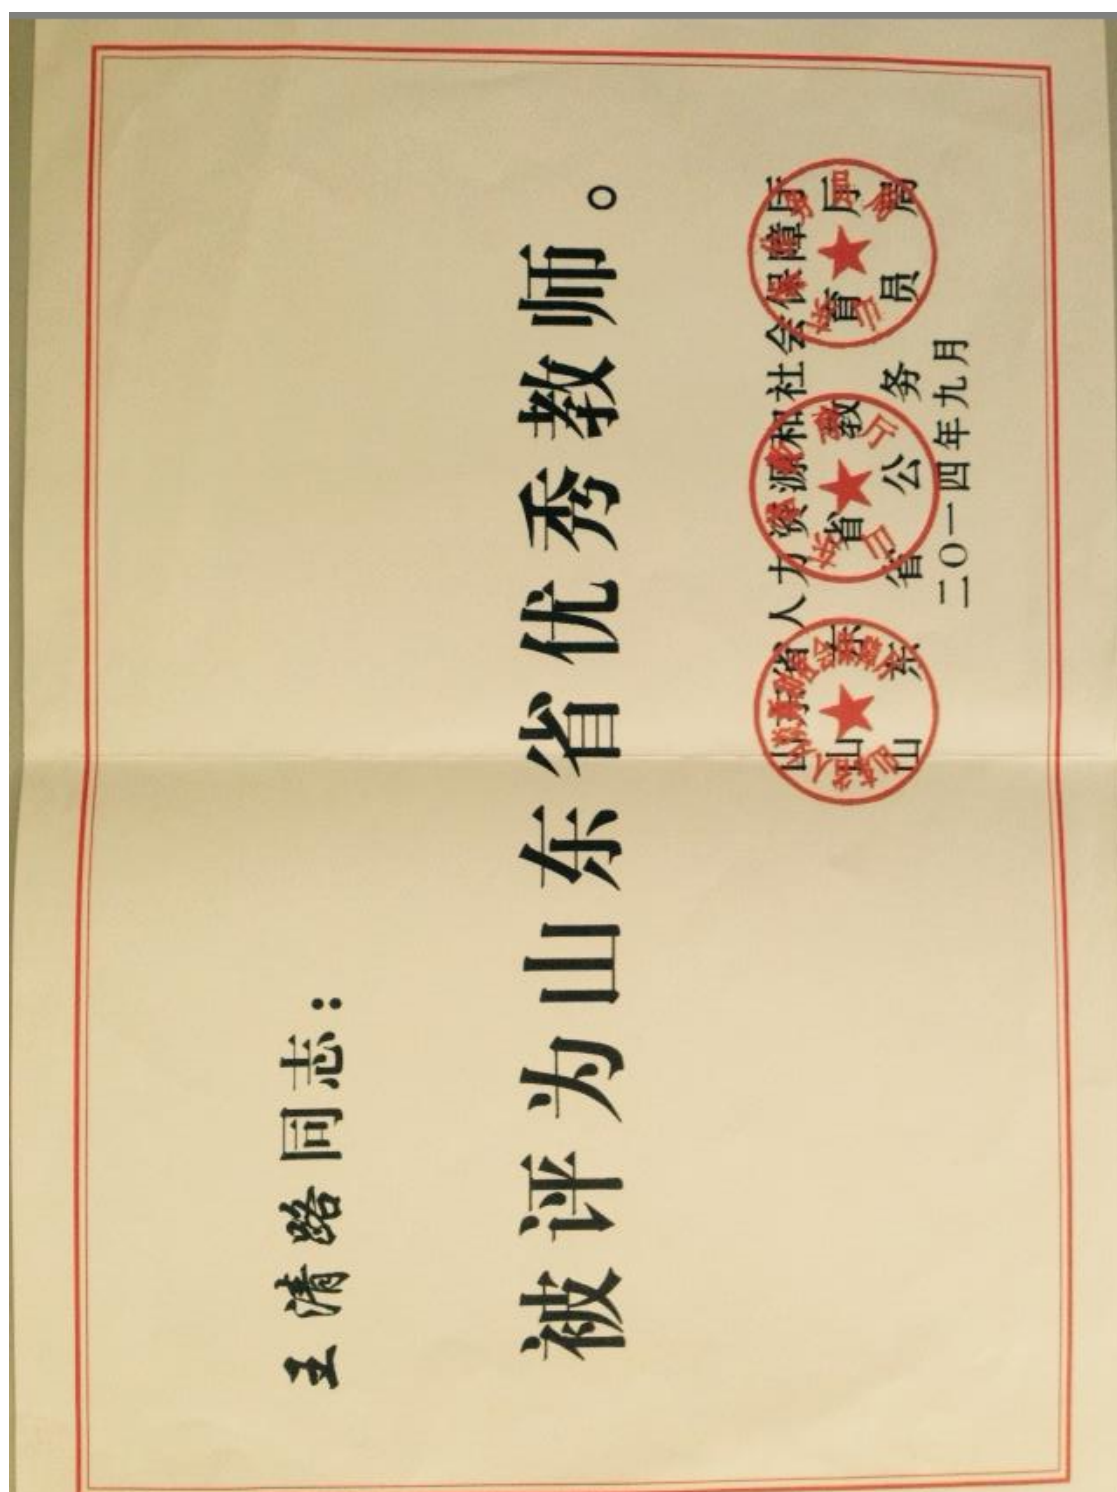 王清路同志：
被评为山东省优秀教师。
山东省人力资源和社会保障厅
山东省教育厅
山东省公务员局
二〇一四年九月